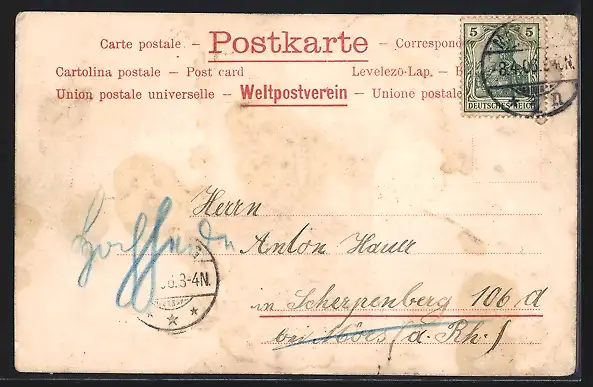 Carte postale – Postkarte – Correspond
Cartolina postale – Post card Levelezö-Lap. –
Union postale universelle – Weltpostverein – Unione postale
5 5
DEUTSCHES REICH
Herrn
Anton Hauer
3-4N.
in Scherpenberg 106 d
bei Mörs (a. Rh.)